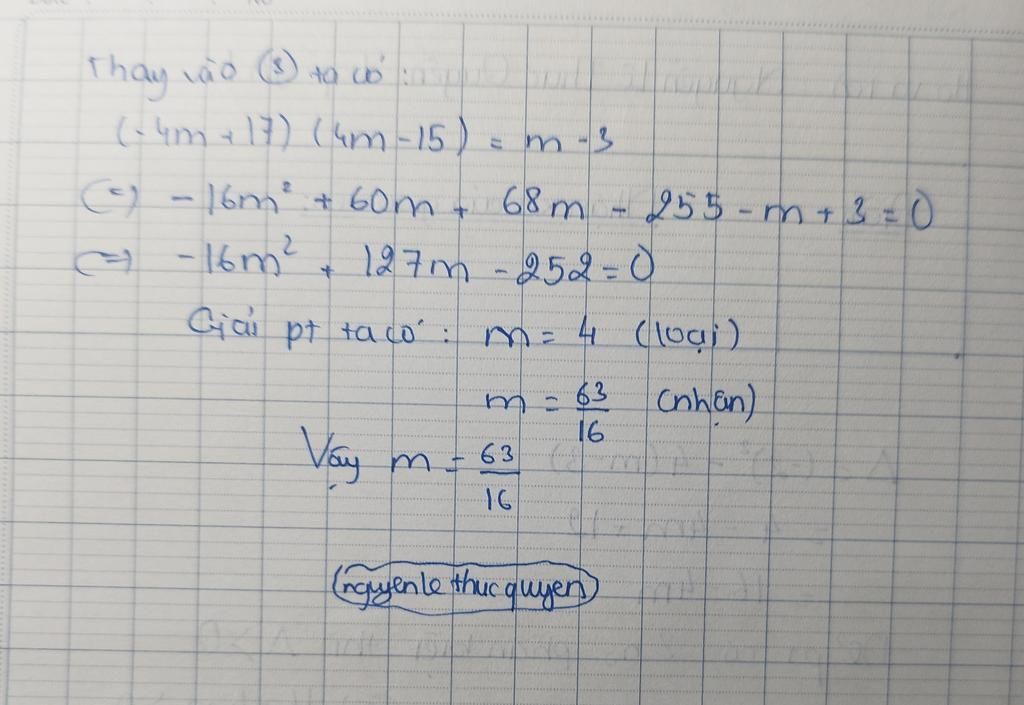 Thay vào (3) ta có:
(-4m + 17) (4m - 15) = m - 3
(=) - 16m² + 60m + 68m - 255 - m + 3 = 0
(=) -16m² + 127m - 252 = 0
Giải pt ta có: m = 4 (loại)
m = 63/16 (nhận)
Vậy m = 63/16
(nguyenle thucquyen)